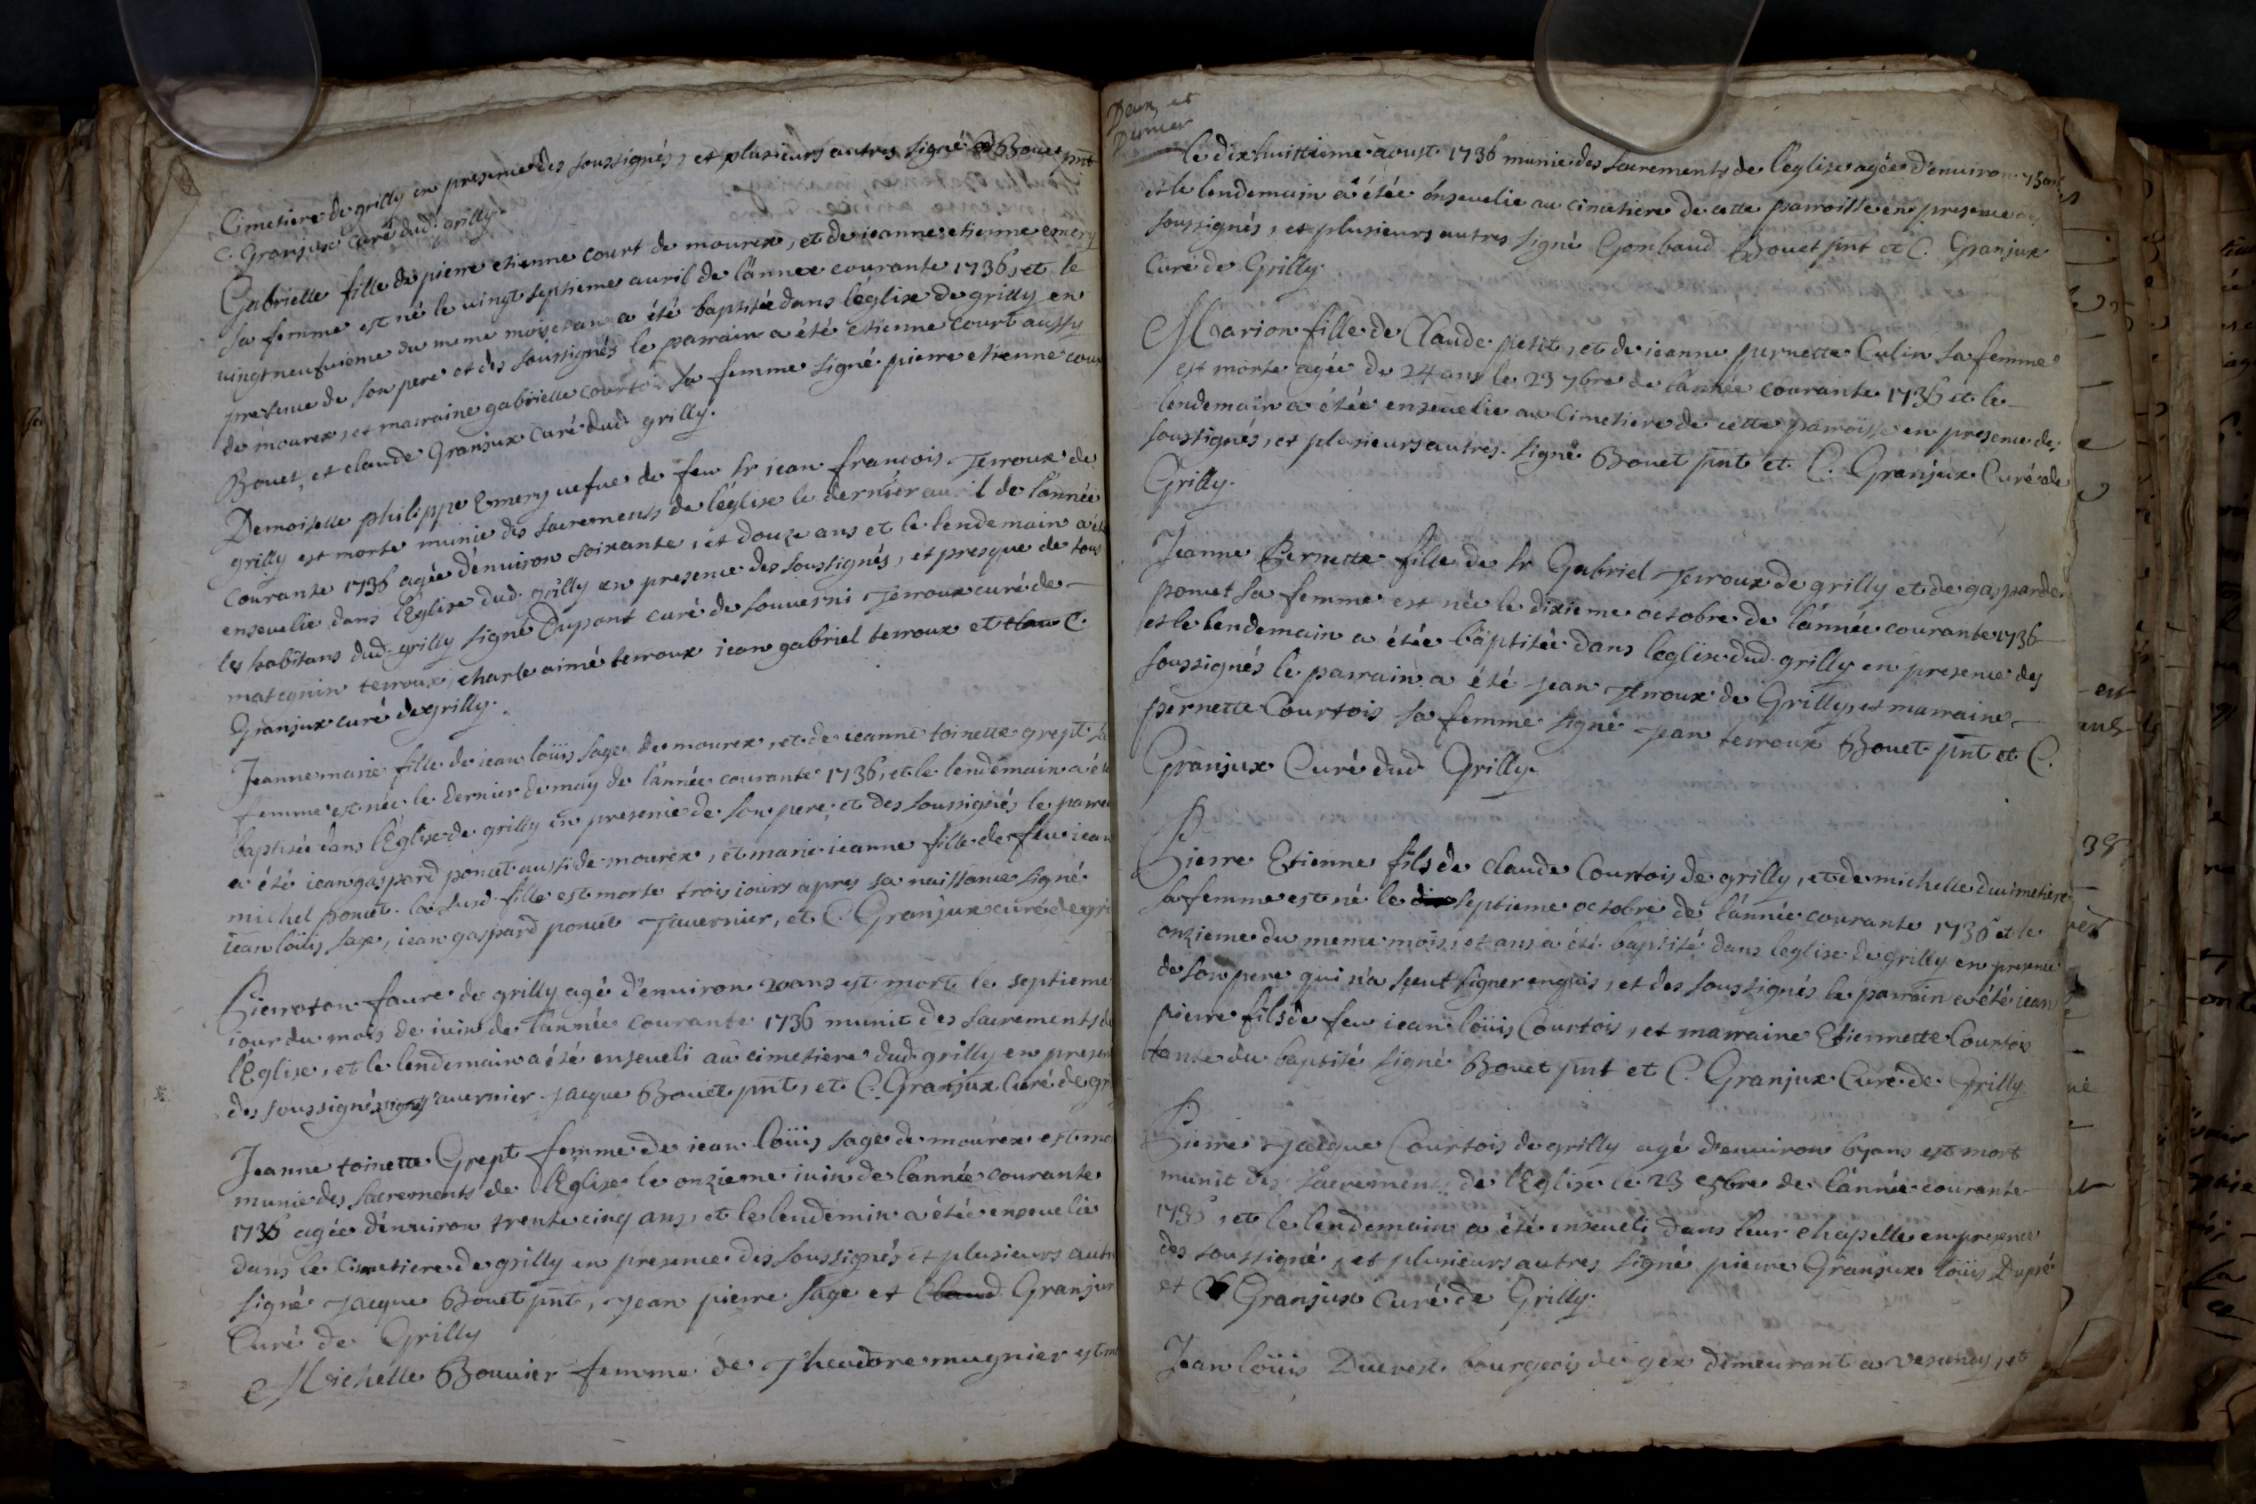 Cimetiere de grilly en presence des soussignés, et plusieurs autres signé Bouet pnt
C. Granjux curé dud. grilly.
Gabrielle fille de pierre etienne court de mourex, et de ieanne etienne emery
sa femme est né le vingt septieme avril de l'année courante 1736, et le
vingt neufvieme du meme mois et an a été baptisée dans l'église de grilly en
presence de son pere et des soussignés le parrain a été etienne court aussy
de mourex, et marraine gabrielle courtois sa femme signé pierre etienne court
Bouet, et claude Granjux curé dud. grilly.
Demoiselle philippe Emery vefue de feu sr iean françois Terroux de
grilly est morte munie des sacrements de l'église le dernier avril de l'année
courante 1736 agée d'environ soixante, et douze ans et le lendemain a été
ensevelie dans l'Eglise dud. grilly en presence des soussignés, et presque de tous
les habitans dud. grilly signé Dupont curé de souverni Terroux curé de
matognin terroux, charle aimé terroux iean gabriel terroux et C.
Granjux curé de grilly.
Jeanne marie fille de iean loüis sage de mourex, et de ieanne toinette grept sa
femme est née le dernier de may de l'année courante 1736, et le lendemain a été
baptisée dans l'Eglise de grilly en presence de son pere, et des soussignés le parrain
a été iean gaspard poncet aussi de mourex, et marie ieanne fille de feu iean
michel poncet. la susd. fille est morte trois iours apres sa naissance signé
iean loüis sage, iean gaspard poncet Tavernier, et C. Granjux curé de gri
Pierroton faure de grilly agé d'environ 20 ans est mort le septieme
iour du mois de iuin de l'année courante 1736 munit des sacrements de
l'Eglise, et le lendemain a été enseveli au cimetiere dud. grilly en presen
des soussignés signé Tavernier. Jacque Bouet pnt, et C. Granjux Curé de gr
Jeanne toinette Grept femme de iean loüis sage de mourex est mo
munie des sacrements de l'Eglise le onzieme iuin de l'année courante
1736 agée d'environ trente cinq ans, et le lendemin a été ensevelie
dans le Cimetiere de grilly en presence des soussignés et plusieurs autr
signé Jacque Bouet pnt, Jean pierre sage et Claud Granjux
Curé de Grilly
Michelle Bouvier femme de Theodore mugnier est m
Deux, et
Dernier
le dix huittieme aoust 1736 munie des sacrements de l'eglise agée d'environ 75 ans
et le lendemain a été ensevelie au cimetiere de cette parroisse en presence des
soussignés, et plusieurs autres signé Gombaud Bouet pnt et C. Granjux
Curé de Grilly.
Marion fille de Claude petit, et de ieanne pernette Culin sa femme
est morte agée de 24 ans le 23 7bre de l'année courante 1736 et le
lendemain a étée ensevelie au Cimetiere de cette parroisse en presence des
soussignés, et plusieurs autres. signé Bouet pnt et C. Granjux Curé de
Grilly.
Jeanne Pernette fille de sr Gabriel Terroux de grilly et de gasparde
poncet sa femme est née le dixieme octobre de l'année courante 1736
et le lendemain a étée baptisée dans leglise dud. grilly en presence des
soussignés le parrain a été Jean Terroux de Grilly, et marraine
pernette Courtois sa femme signé Jean terroux Bouet pnt et C.
Granjux Curé dud Grilly.
Pierre Etienne fils de claude Courtois de grilly, et de michelle ducimetiere
sa femme est né le septieme octobre de l'année courante 1736 et le
onzieme du meme mois, et an a été baptisé dans leglise de grilly en presence
de son pere qui n'a sceut signer enquis, et des soussignés le parrain a été iean
pierre fils de feu iean loüis Courtois, et marraine Etiennette Courtois
tante du baptisé signé Bouet pnt et C. Granjux Curé de Grilly
Pierre Jacque Courtois de grilly agé d'environ 67 ans est mort
munit des sacrements de l'Eglise le 23 de l'année courante
1736, et le lendemain a été enseveli dans leur chapelle en presence
des soussigné, et plusieurs autres signé pierre Granjux loüis Dupré
et C Granjux Curé de Grilly.
Jean loüis Ducrest bourgeois de gex demeurant a vesancy, et